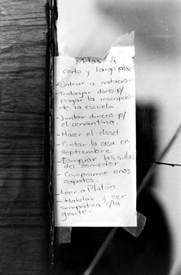 Metas a
corto y largo plazo
-Entrar a natación
-Trabajar duro p/
pagar la inscripción
de la escuela.
-Juntar dinero p/
el cervantino.
-Hacer el closet
-Pintar la casa en
septiembre
-Comprar las sillas
del comedor
-Comprarme unos
zapatos
-Leer a Platón
-Hablar y ser
simpática c/la
gente.